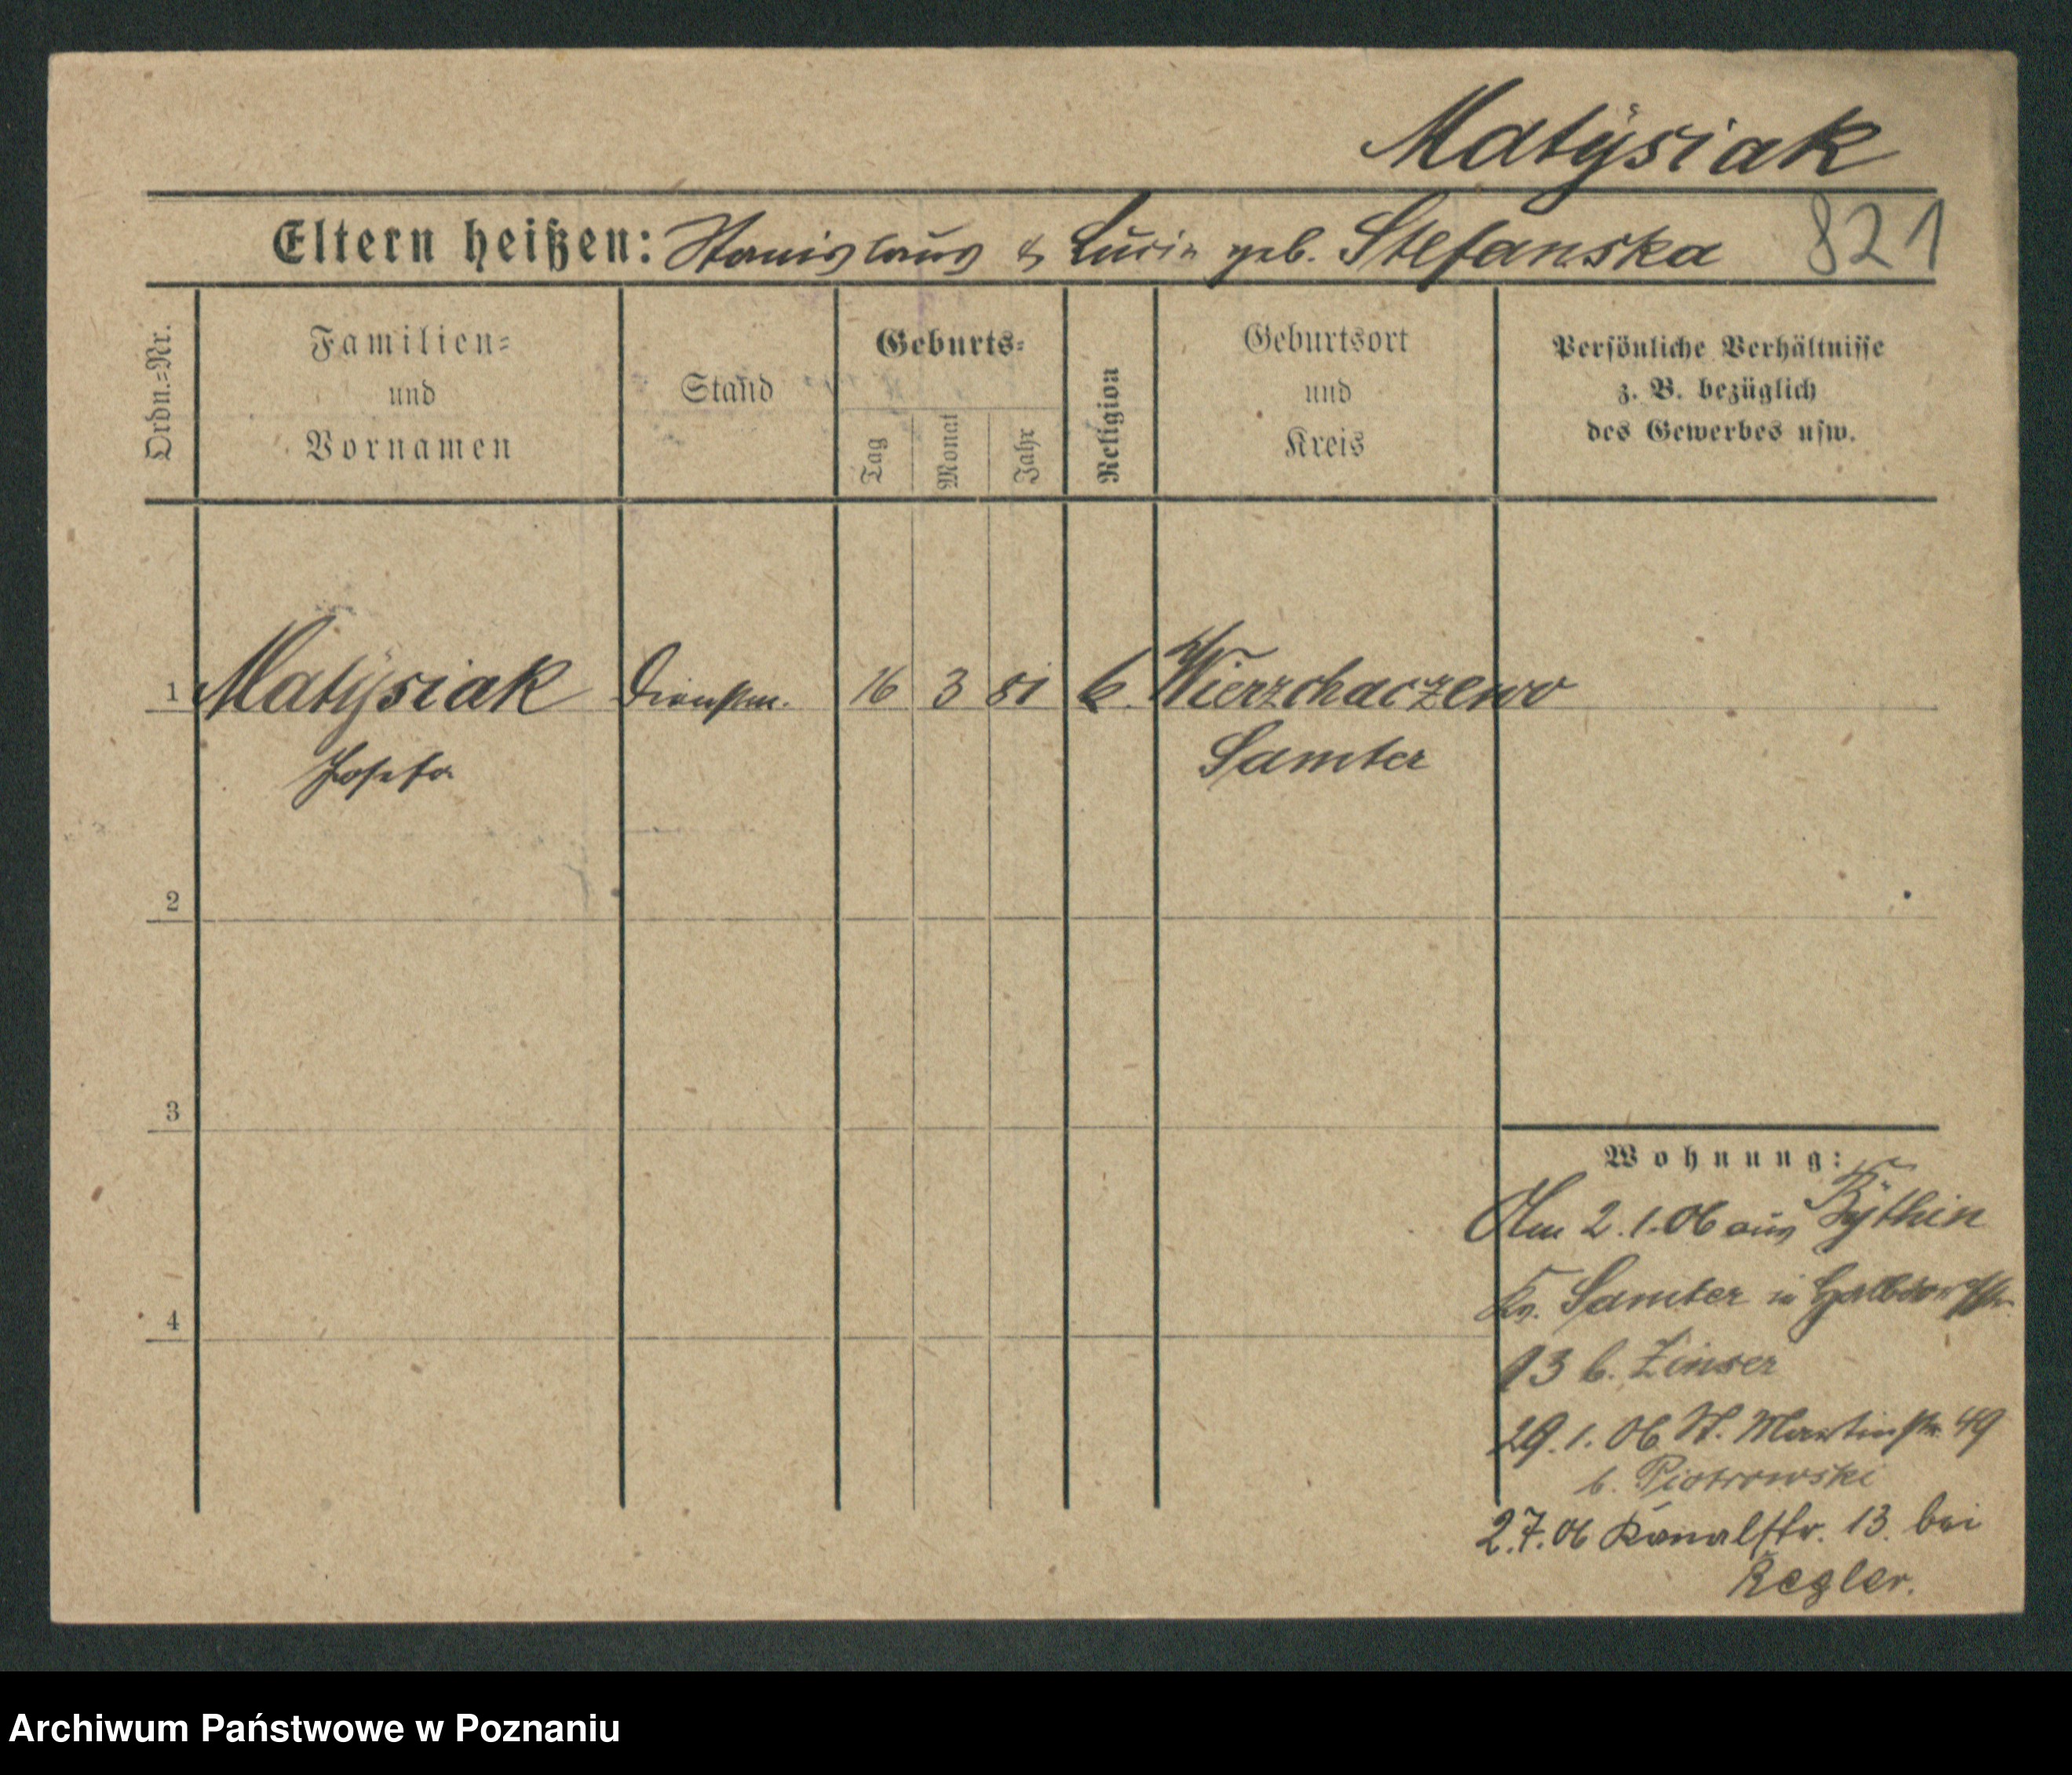 Matÿsiak
Eltern heißen: Stanislaus & Lucia geb. Stefanska 821
Ordn.=Nr.
Familien=
und
Vornamen
Stand
Geburts=
Tag
Monat
Jahr
Religion
Geburtsort
und
Kreis
Persönliche Verhältnisse
z. B. bezüglich
des Gewerbes usw.
1 Matÿsiak Dienstm. 16 3 81 k. Wierzchaczewo
Josefa Samter
2
3
4
Wohnung:
Am 2.1.06 aus Bÿthin
Kr. Samter in
13 b. Zinser
29.1.06 St. Martinstr. 49
b. Piotrowski
2.7.06 Kanalstr. 13. bei
Regler.
Archiwum Państwowe w Poznaniu